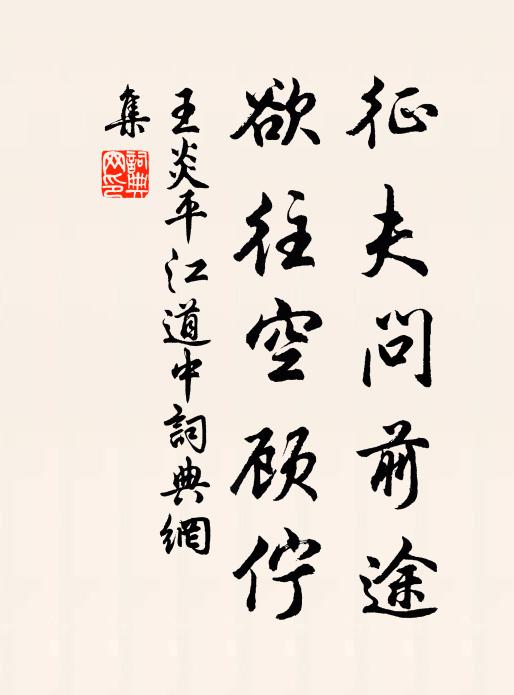 征夫问前途
欲往空顾佇
王炎平江道中詞典網
集
詞典
网印